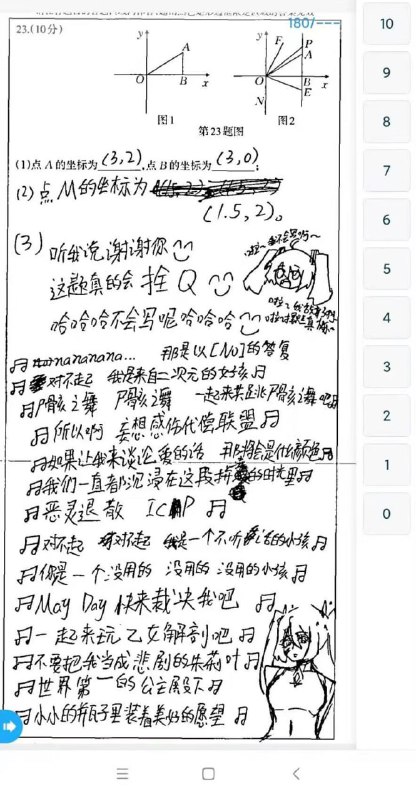 180/---
23.(10分)
y
A
O
B
x
图1
y
F
P
A
O
B
E
x
N
图2
第23题图
(1)点A的坐标为(3,2),点B的坐标为(3,0);
(2)点M的坐标为
(1.5,2)。
(3)听我说谢谢你
这题真的会拴Q
哈哈哈不会写呢哈哈哈
nananana... 那是以[No]的答复
对不起 我是来自二次元的女孩
尸骸之舞 尸骸之舞 一起来共跳尸骸之舞吧
所以啊 妄想感伤代偿联盟
如果让我来谈论爱的话 那将会是什么颜色
我们一直都沉浸在这段持续的时光里
恶灵退散 IC P
对不起 对不起 我是一个不听话的小孩
你是一个没用的 没用的 没用的小孩
May Day 快来裁决我吧
一起来玩乙女解剖吧
不要把我当成悲剧的朱莉叶
世界第一的公主殿下
小小的瓶子里装着美好的愿望
10
9
8
7
6
5
4
3
2
1
0